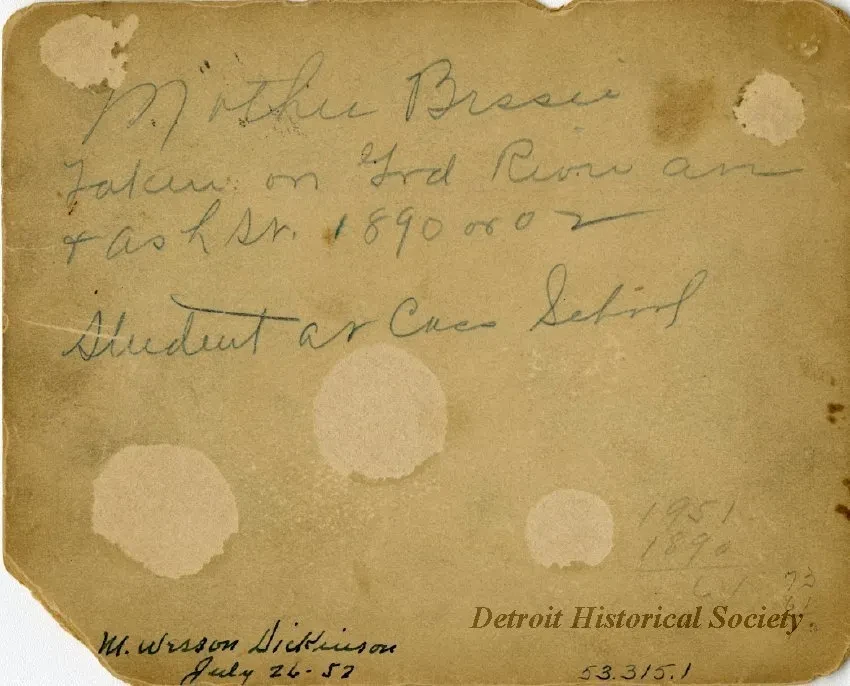 Mother Bessie
Taken on Grd River ave
+ Ash St. 1890 or 02
Student at Cass School
1951
1890
61
73
61
Detroit Historical Society
M. Wesson Dickinson
July 26-52
53.315.1